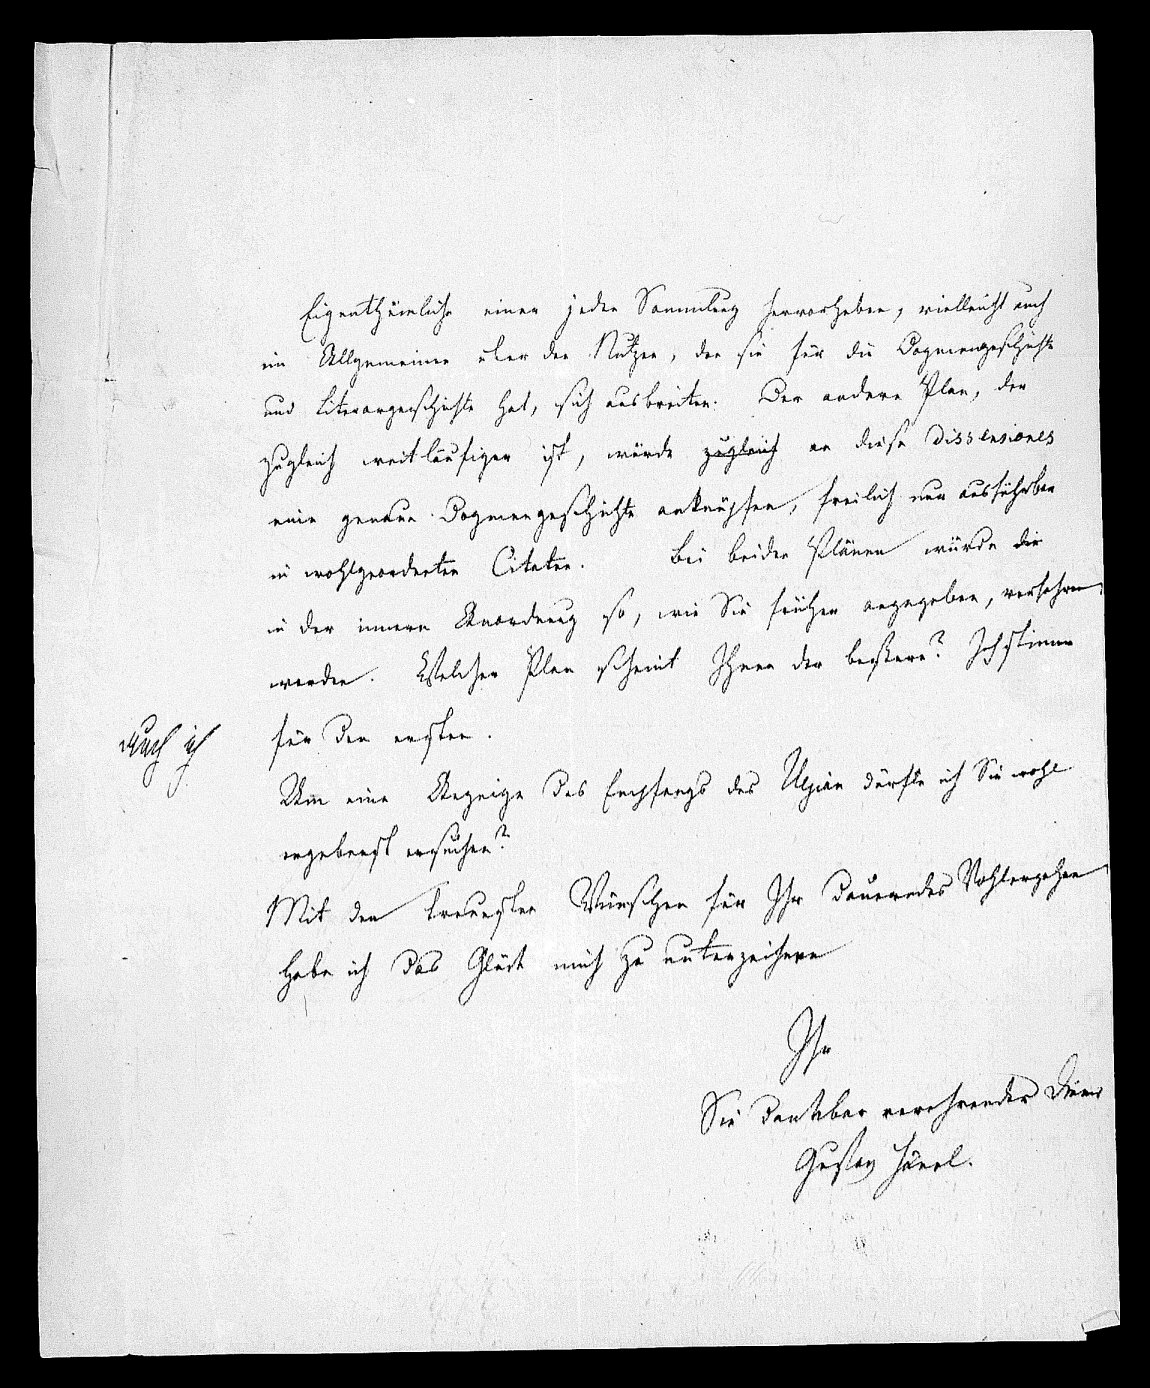 Eigenthümliche einer jeden Sammlung hervorheben, vielleicht auch
im Allgemeinen über den Nutzen, den sie für die Dogmengeschichte
und Literargeschichte hat, sich ausbreiten. Der andere Plan, der
zugleich weitläufiger ist, würde zugleich an diese Dissensiones
eine genaue Dogmengeschichte anknüpfen, freilich nur ausführbar
in wohlgeordneten Citaten. Bei beiden Plänen würde die
in der innern Anordnung so, wie Sie früher angegeben, verfahren
werden. Welcher Plan scheint Ihnen der bessere? Ich stimme
für den ersten.
auch ich
Um eine Anzeige des Empfangs des Ulpian dürfte ich Sie wohl
ergebenst ersuchen?
Mit den treuesten Wünschen für Ihr dauerndes Wohlergehen
habe ich das Glück mich zu unterzeichnen
Ihr
Sie dankbar verehrender Diener
Gustav Hänel.